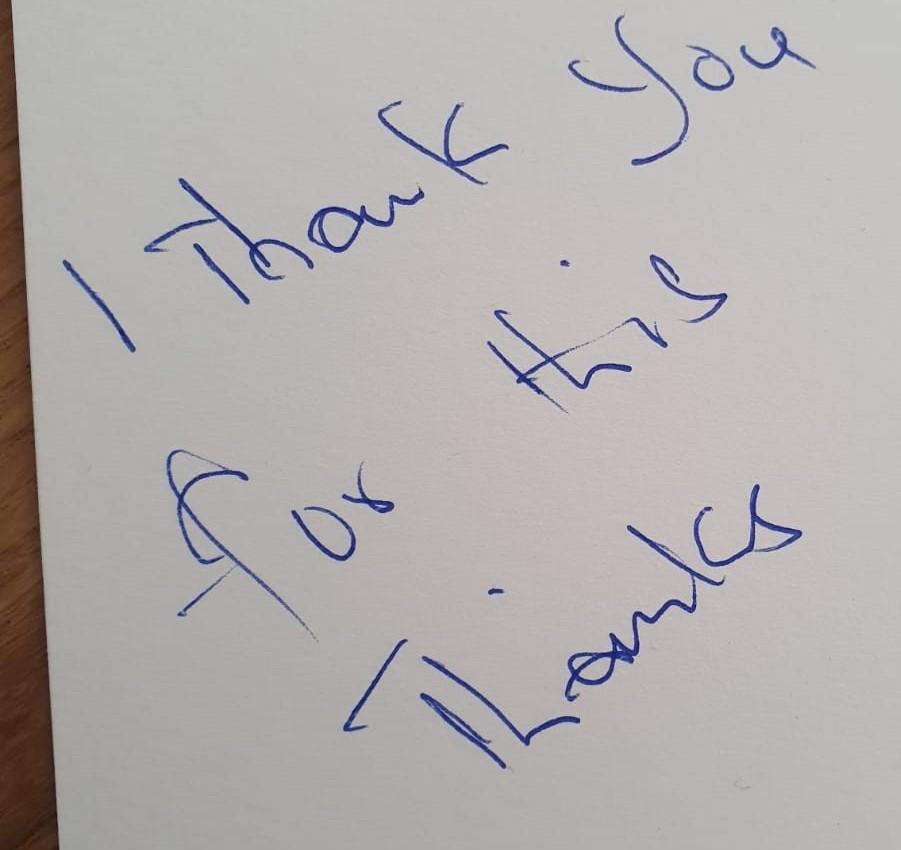 I Thank You
for this
Thanks